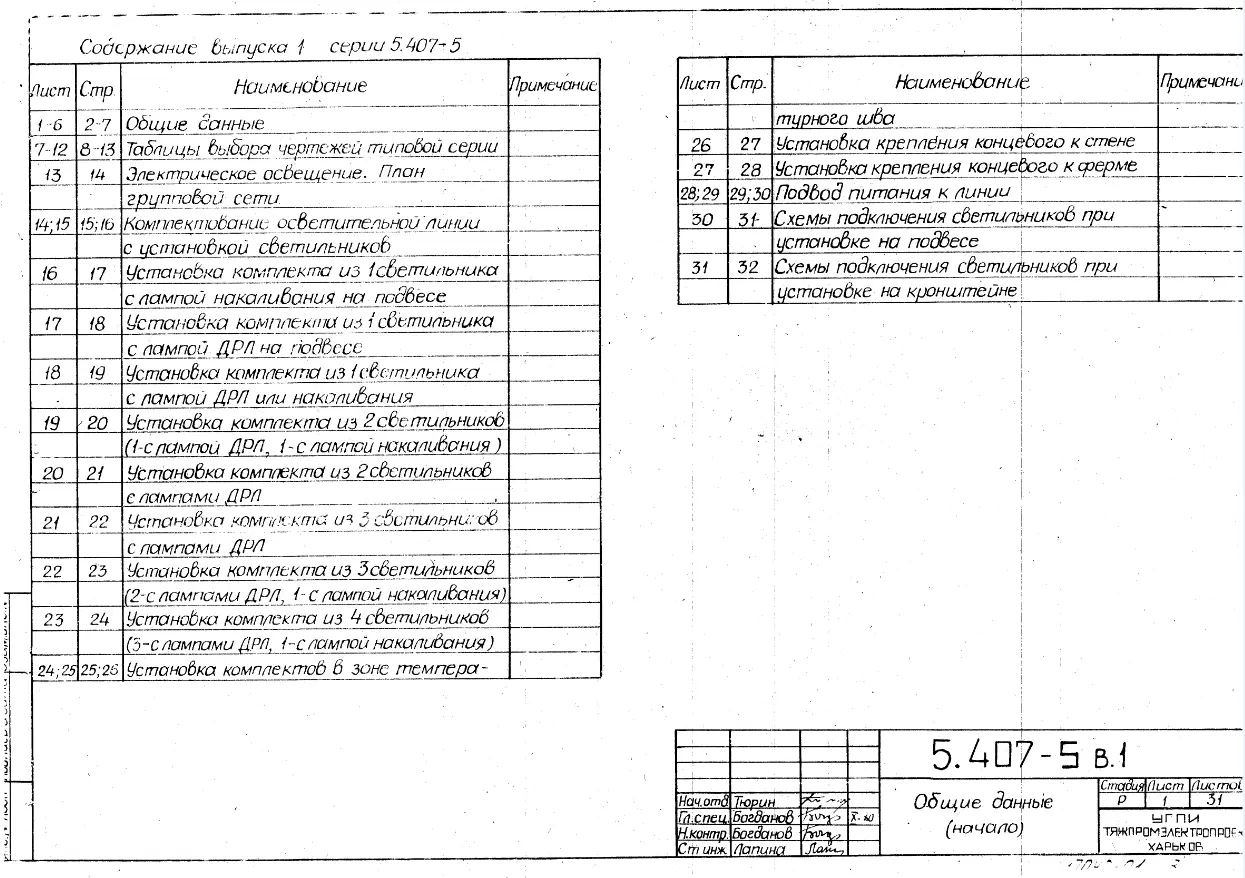 Содержание выпуска 1 серии 5.407-5
Лист Стр. Наименование Примечание
1-6 2-7 Общие данные
7-12 8-13 Таблицы выбора чертежей типовой серии
13 14 Электрическое освещение. План
групповой сети
14;15 15;16 Комплектование осветительной линии
с установкой светильников
16 17 Установка комплекта из 1 светильника
с лампой накаливания на подвесе
17 18 Установка комплекта из 1 светильника
с лампой ДРЛ на подвесе
18 19 Установка комплекта из 1 светильника
с лампой ДРЛ или накаливания
19 20 Установка комплекта из 2 светильников
(1-с лампой ДРЛ, 1-с лампой накаливания)
20 21 Установка комплекта из 2 светильников
с лампами ДРЛ
21 22 Установка комплекта из 3 светильников
с лампами ДРЛ
22 23 Установка комплекта из 3 светильников
(2-с лампами ДРЛ, 1-с лампой накаливания)
23 24 Установка комплекта из 4 светильников
(3-с лампами ДРЛ, 1-с лампой накаливания)
24;25 25;26 Установка комплектов в зоне темпера-
Лист Стр. Наименование Примечани
турного шва
26 27 Установка крепления концевого к стене
27 28 Установка крепления концевого к ферме
28;29 29;30 Подвод питания к линии
30 31 Схемы подключения светильников при
установке на подвесе
31 32 Схемы подключения светильников при
установке на кронштейне
5.407-5 в.1
Нач.отд. Тюрин
Гл.спец. Богданов
Н.контр. Богданов
Ст инж. Лапина
Общие данные
(начало)
Стадия Лист Листов
Р 1 31
УГПИ
ТЯЖПРОМЭЛЕКТРОПРОЕ
ХАРЬКОВ